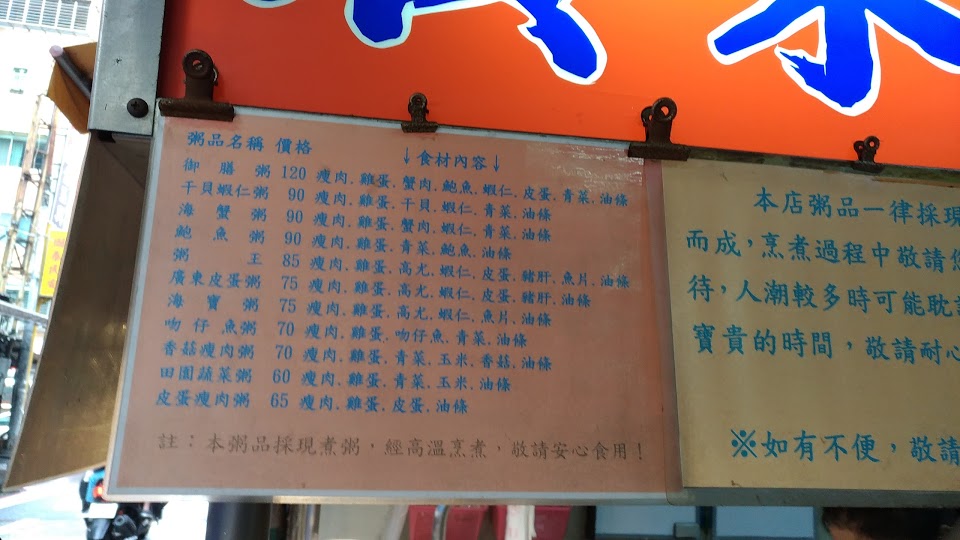 粥品名稱 價格 ↓食材內容↓
御膳粥 120 瘦肉.雞蛋.蟹肉.鮑魚.蝦仁.皮蛋.青菜.油條
干貝蝦仁粥 90 瘦肉.雞蛋.干貝.蝦仁.青菜.油條
海蟹粥 90 瘦肉.雞蛋.蟹肉.蝦仁.青菜.油條
鮑魚粥 90 瘦肉.雞蛋.青菜.鮑魚.油條
粥王 85 瘦肉.雞蛋.高尢.蝦仁.皮蛋.豬肝.魚片.油條
廣東皮蛋粥 75 瘦肉.雞蛋.高尢.蝦仁.皮蛋.豬肝.油條
海寶粥 75 瘦肉.雞蛋.高尢.蝦仁.魚片.油條
吻仔魚粥 70 瘦肉.雞蛋.吻仔魚.青菜.油條
香菇瘦肉粥 70 瘦肉.雞蛋.青菜.玉米.香菇.油條
田園蔬菜粥 60 瘦肉.雞蛋.青菜.玉米.油條
皮蛋瘦肉粥 65 瘦肉.雞蛋.皮蛋.油條
註：本粥品採現煮粥，經高溫烹煮，敬請安心食用！
本店粥品一律採現
而成，烹煮過程中敬請您
待，人潮較多時可能耽
寶貴的時間，敬請耐心
※如有不便，敬請